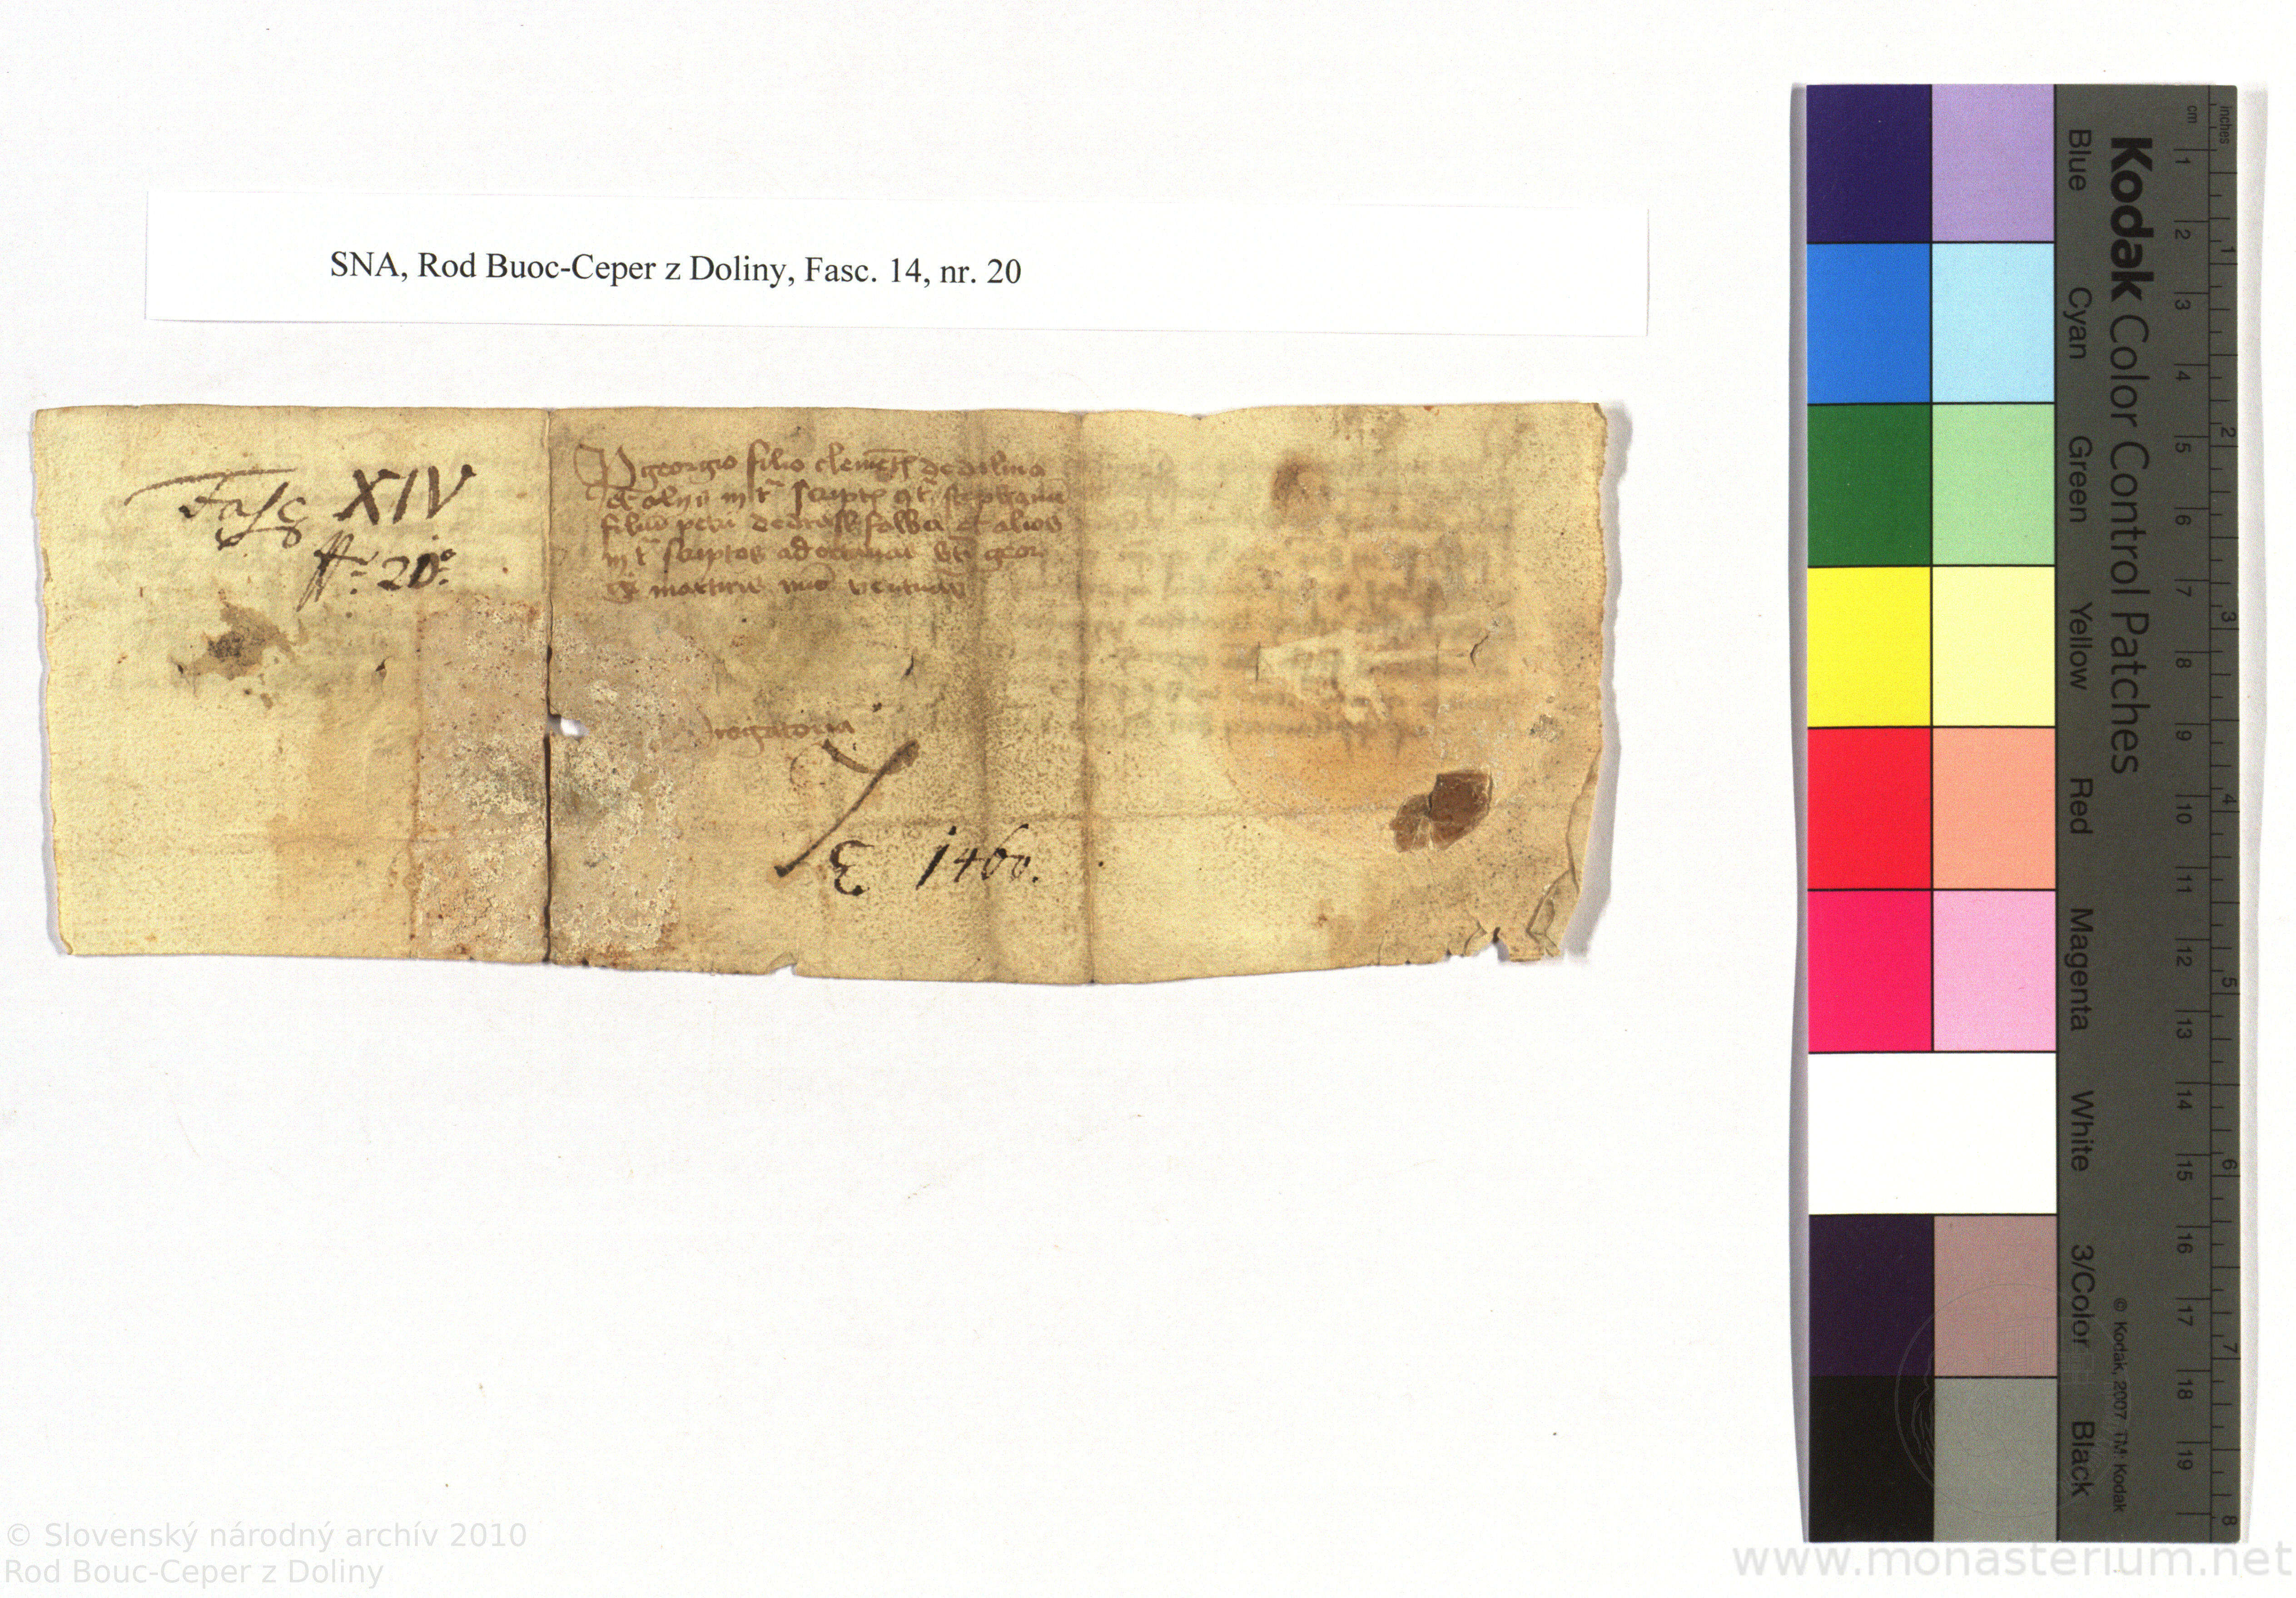 SNA, Rod Buoc-Ceper z Doliny, Fasc. 14, nr. 20
Fasc XIV
20
georgio filio clement de dolina
et alys in scriptis stephanum
filium petri de et alios
in scriptos ad octavas geor
martiris venturas
rogatoria
E 1460.
Kodak Color Control Patches
Blue Cyan Green Yellow Red Magenta White 3/Color Black
© Kodak, 2007, TM: Kodak
cm 1 2 3 4 5 6 7 8 9 10 11 12 13 14 15 16 17 18 19
inches 1 2 3 4 5 6 7 8
© Slovenský národný archív 2010
Rod Bouc-Ceper z Doliny
www.monasterium.net